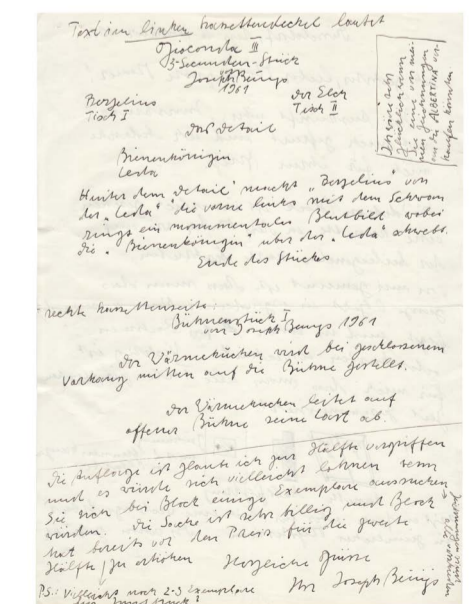 Text im linken Kassettendeckel lautet
Gioconda III
3-Secunden-Stück
von
Joseph Beuys
1961
Berzelius
Tisch I
der Elch
Tisch II
das Detail
Bienenkönigin
Leda
Hinter dem „Detail" macht „Berzelius" von
der „Leda" die vorne links mit dem Schwan
ringt ein monumentales Blutbild wobei
die „Bienenkönigin" über der „Leda" schwebt.
Ende des Stückes
Ich würde sehr
glücklich wenn
Sie eine von mei-
nen Zeichnungen
an die ALBERTINA ver-
kaufen könnten.
rechte Kassettenseite:
Bühnenstück I
von Joseph Beuys 1961
der Wärmekuchen wird bei geschlossenem
Vorhang mitten auf die Bühne gestellt.
der Wärmekuchen leitet auf
offener Bühne seine Last ab.
Die Auflage ist glaube ich zur Hälfte vergriffen
und es würde sich vielleicht lohnen wenn
Sie sich bei Block einige Exemplare aussuchen
würden. die Sache ist sehr billig und Block
hat bereits vor den Preis für die zweite
Hälfte zu erhöhen
Herzliche Grüsse
Ihr Joseph Beuys
alle verschieden
P.S.: Vielleicht noch 2-3 Exemplare